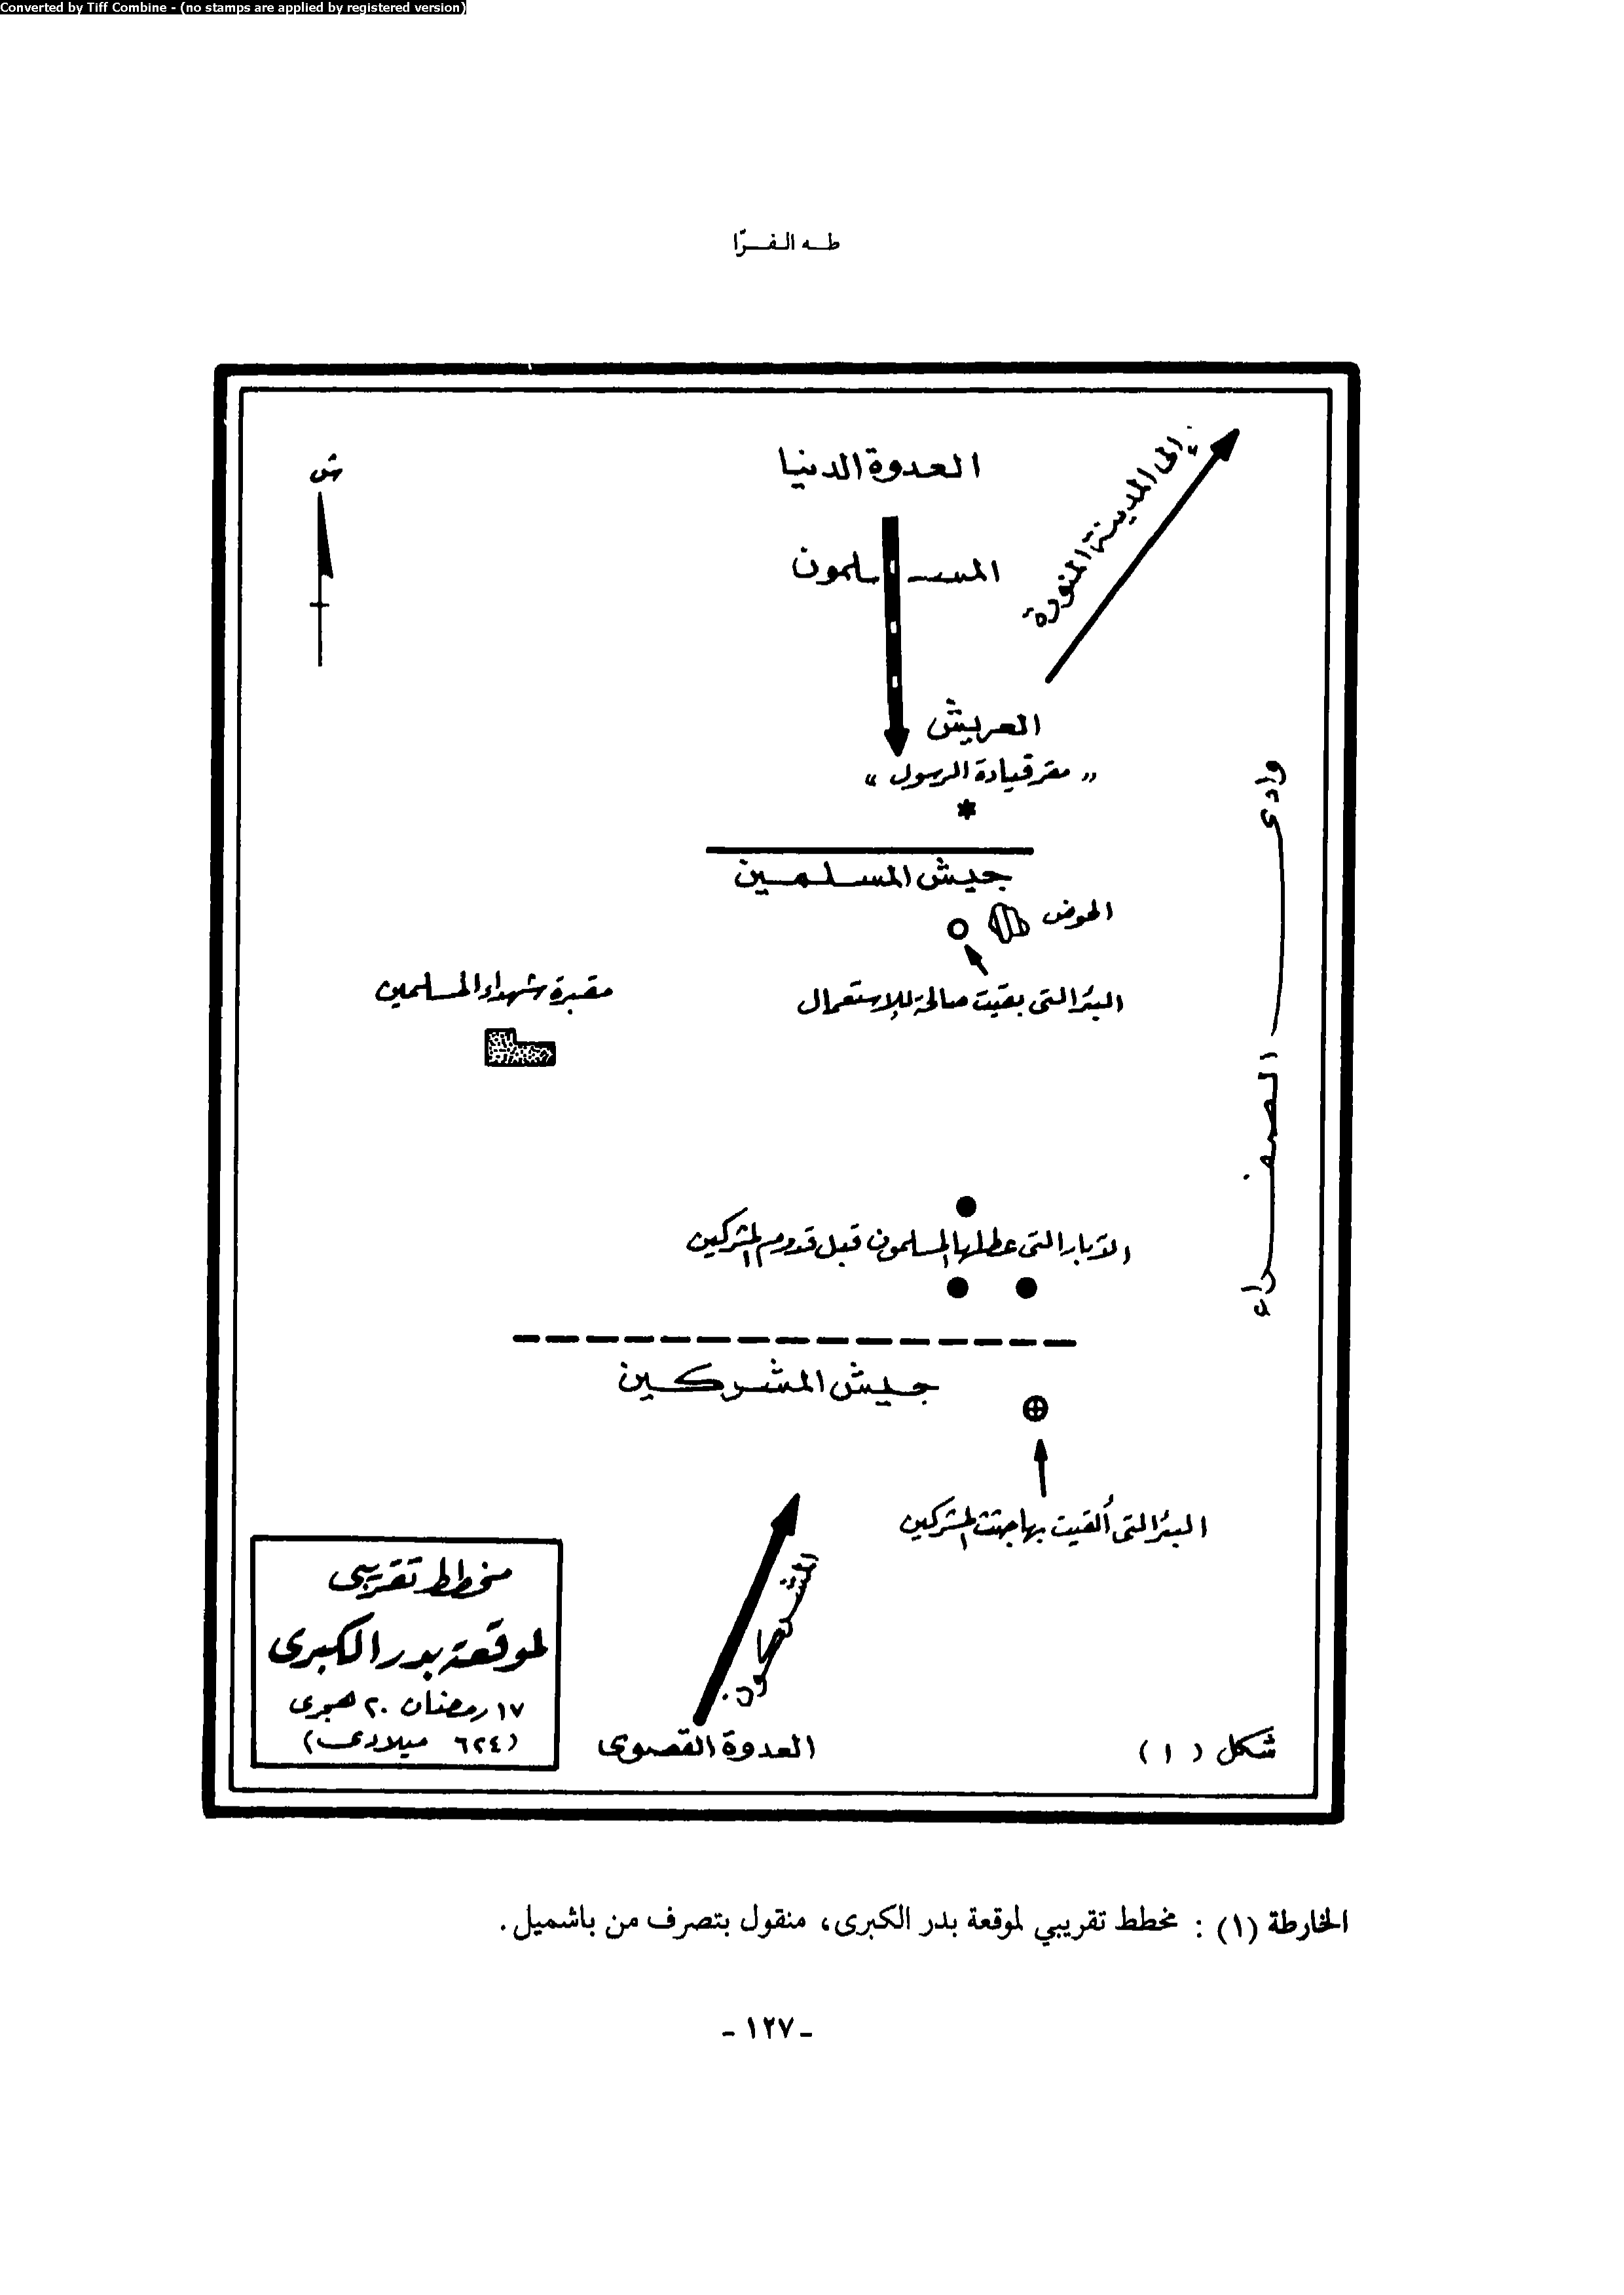 Converted by Tiff Combine - (no stamps are applied by registered version)
طه الفرّا
ش
العدوة الدنيا
إلى المدينة المنورة
المسلمون
العريش
« مقر قيادة الرسول »
جيش المسلمين
الحوض
البئر التى بقيت صالحة للاستعمال
مقبرة شهداء المسلمين
وادى الصفراء
الآبار التى عطلها المسلمون قبل قدوم المشركين
جيش المشركين
البئر التى ألقيت بها جثث المشركين
المشركون
العدوة القصوى
مخطط تقريبى
لموقعة بدر الكبرى
١٧ رمضان ٢٠ هجرى
(٦٢٤ ميلادى)
شكل (١)
الخارطة (١) : مخطط تقريبي لموقعة بدر الكبرى، منقول بتصرف من باشميل.
- ١٢٧ -